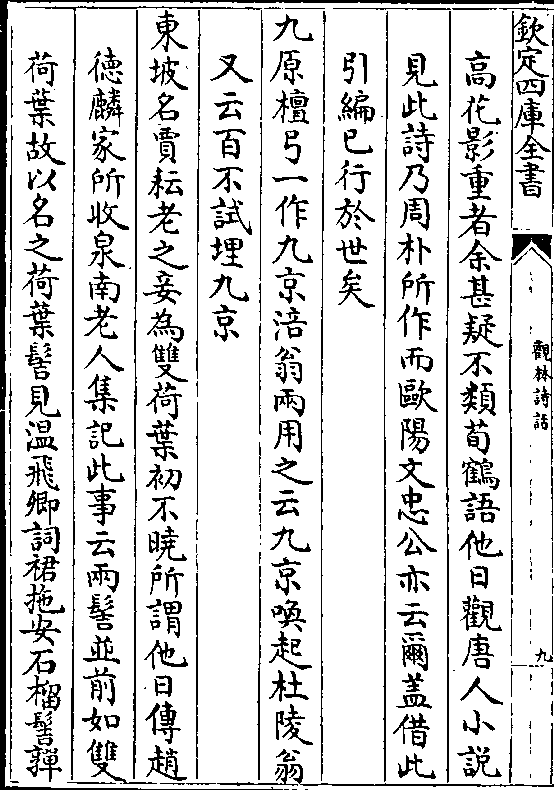 欽定四庫全書
觀林詩話
九
高花影重者余甚疑不類荀鶴語他日觀唐人小説
見此詩乃周朴所作而歐陽文忠公亦云爾蓋借此
引編已行於世矣
九原檀弓一作九京涪翁兩用之云九京喚起杜陵翁
又云百不試埋九京
東坡名賈耘老之妾為雙荷葉初不曉所謂他日傳趙
德麟家所收泉南老人集記此事云兩髻並前如雙
荷葉故以名之荷葉髻見温飛卿詞裙拖安石榴髻亸